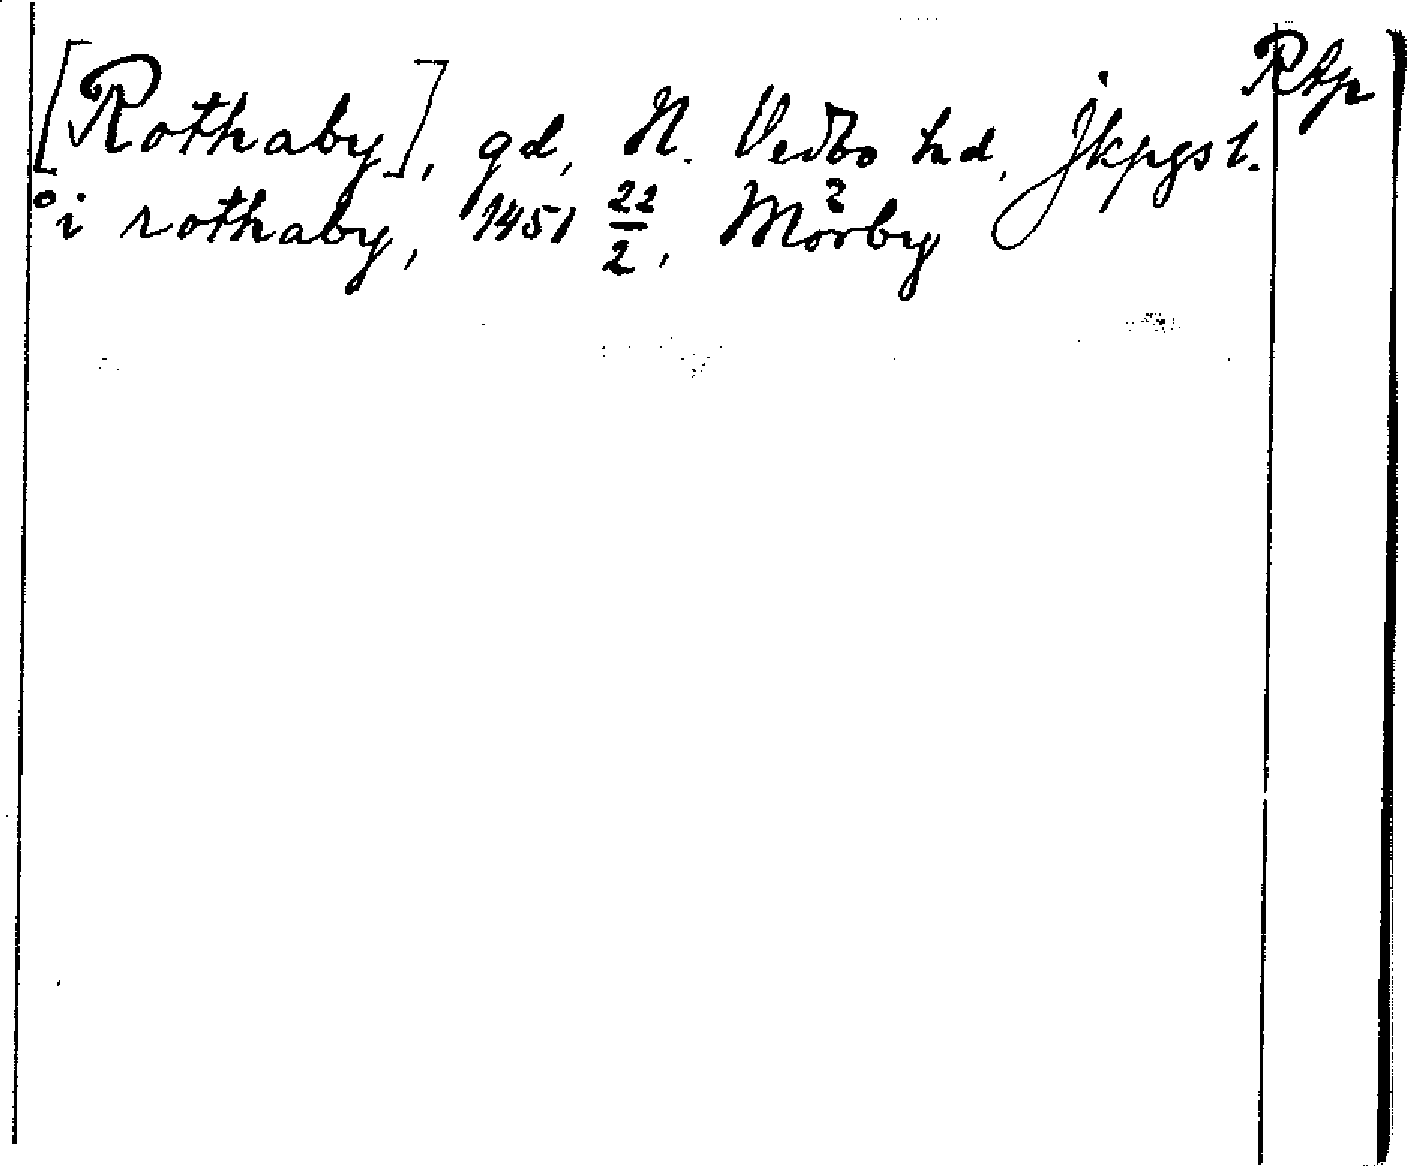 [Rothaby], gd, N. Vedbo hd, Jkpgs l. RAp
° i rothaby, 1451 22/2, Mörby